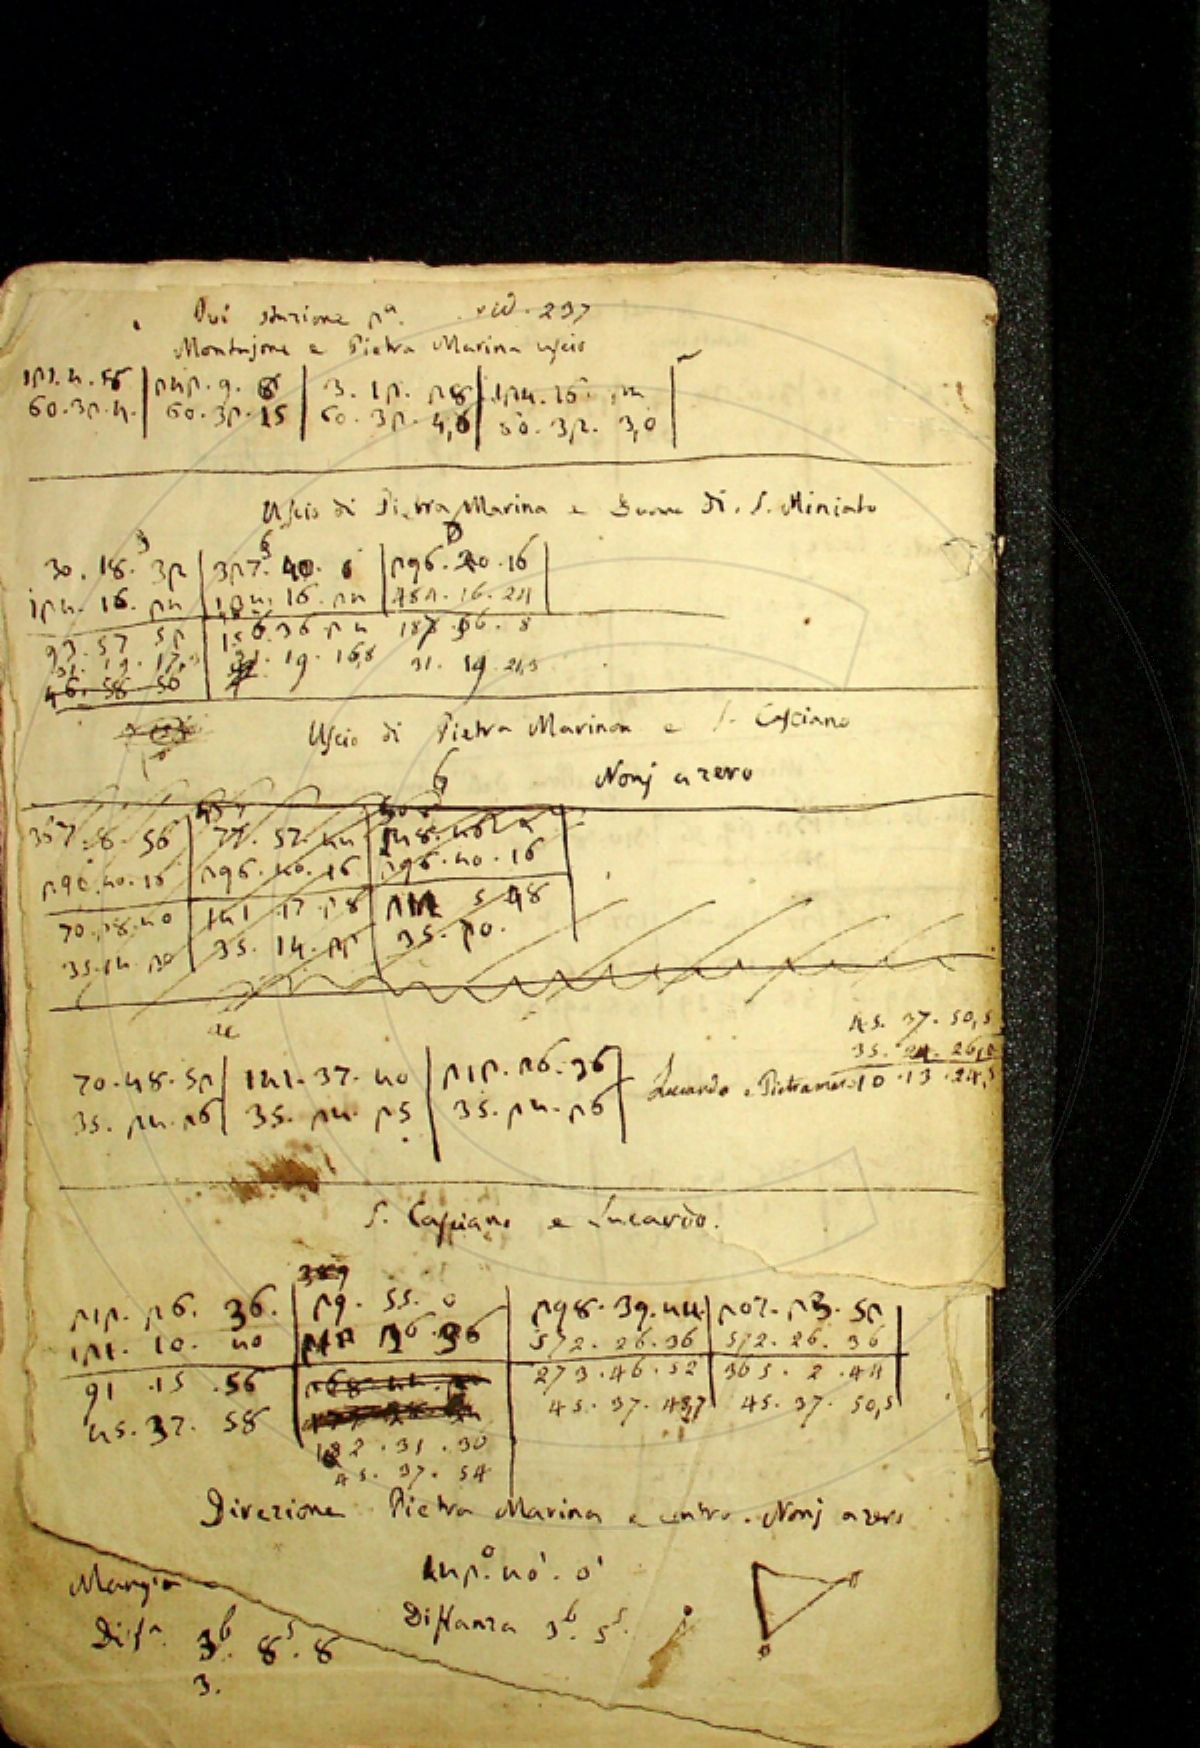 Qui stazione 2ª. vid. 237
Montajone e Pietra Marina uscio
121.4.56 | 242.9.8 | 3.12.28 | 124.16.24
60.32.4. | 60.32.15 | 60.32.4,6 | 60.32.3,0
Uscio di Pietra Marina e Duomo di S. Miniato
30.18.32 | 327.40.8 | 296.20.16
124.16.24 | 124.16.24 | 484.16.24
93.57 52 | 156.36 24 | 187.56.8
31.19.17,3 | 31.19.16,8 | 31.19.21,3
46.58.50
Uscio di Pietra Marina e S. Casciano
Nonj a zero
367.8.56 | 77.57.44 | 148.46
296.40.16 | 296.40.16 | 296.40.16
70.28.40 | 141 17.28 | 212 5 48
35.14 20 | 35.14.22 | 35.20.
45.37.50,5
35.24.26,0
70.48.52 | 141.37.40 | 212.26.36 Lucardo e Pietramar. 10.13.24,5
35.24.26 | 35.24.25 | 35.24.26
S. Casciano e Lucardo.
389
212.26.36. | 29.55.0 | 298.39.44 | 207.23.52
121.10.40 | 212 26.36 | 572.26.36 | 572.26.36
91.15.56 | 273.46.52 | 365.2.44
45.37.58 | 45.37.48,7 | 45.37.50,5
182.31.30
45.37.54
Direzione Pietra Marina e centro. Nonj a zero
Mangia 142°.40'.0'
Dist.ª 3ᵇ. 8ˢ. 8 Distanza 3ᵇ. 5ˢ.
3.